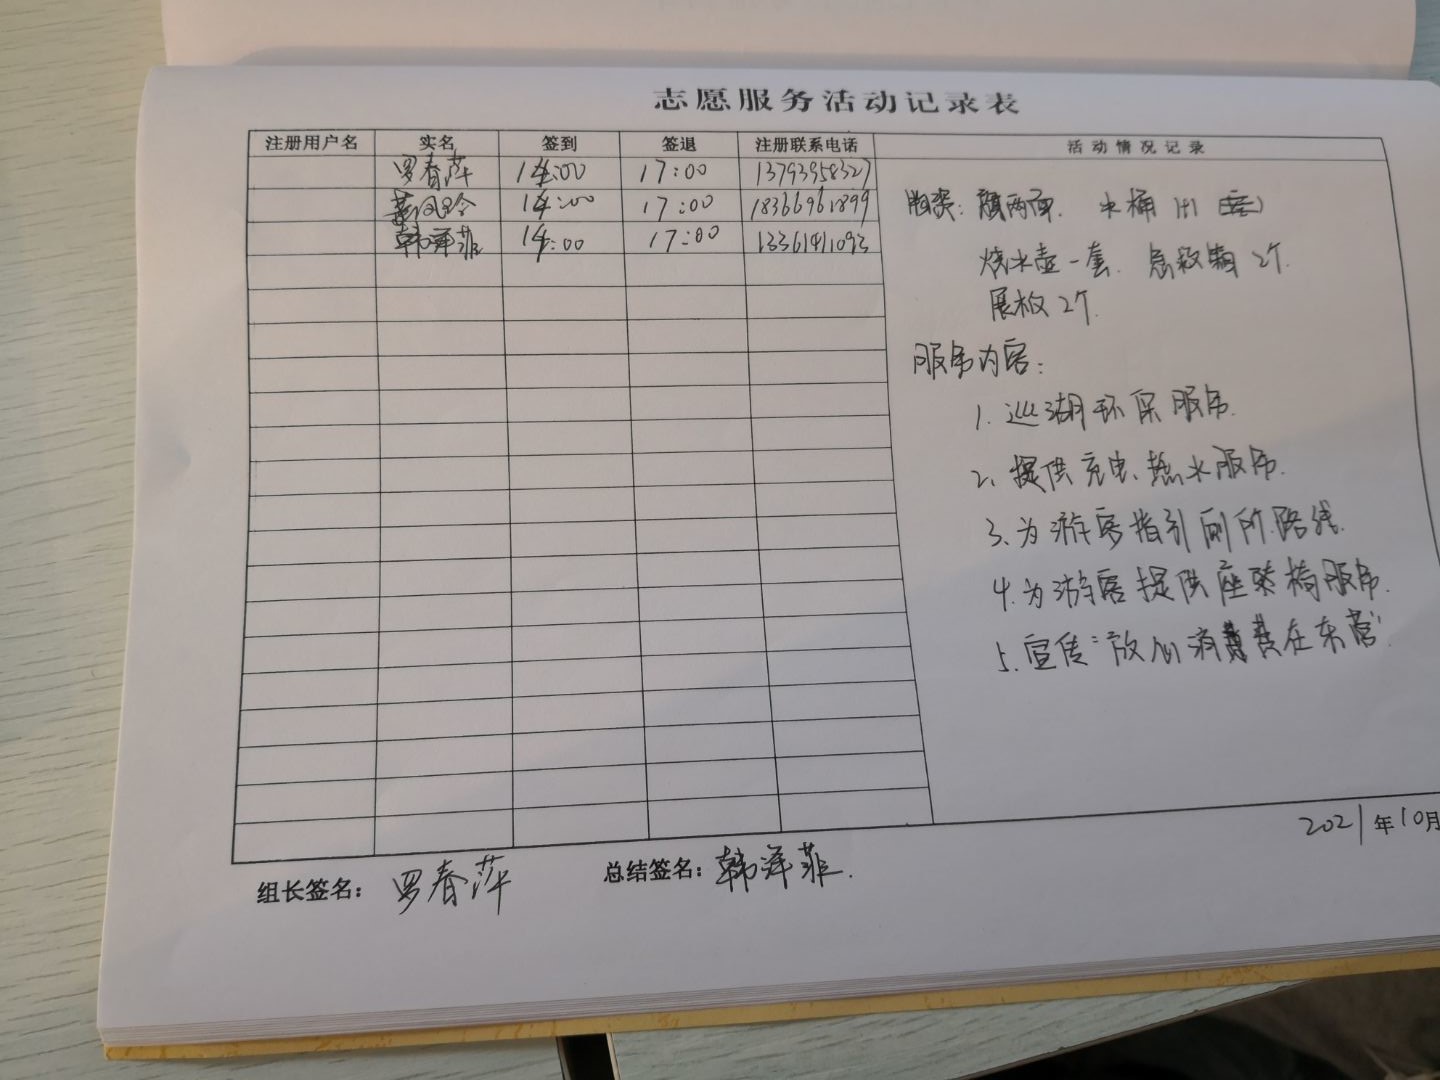 志愿服务活动记录表
注册用户名 实名 签到 签退 注册联系电话 活动情况记录
罗春萍 14:00 17:00 13793958327
凤玲 14:00 17:00 18366961899
韩泽菲 14:00 17:00 13361411093
两面. 水桶
烧水壶一套. 急救箱2个.
展板2个.
服务内容:
1. 巡湖环保服务.
2. 提供充电、热水服务.
3. 为游客指引厕所路线.
4. 为游客提供座椅服务.
5. 宣传“放心消费在东营”.
2021年10月
组长签名: 罗春萍 总结签名: 韩泽菲.